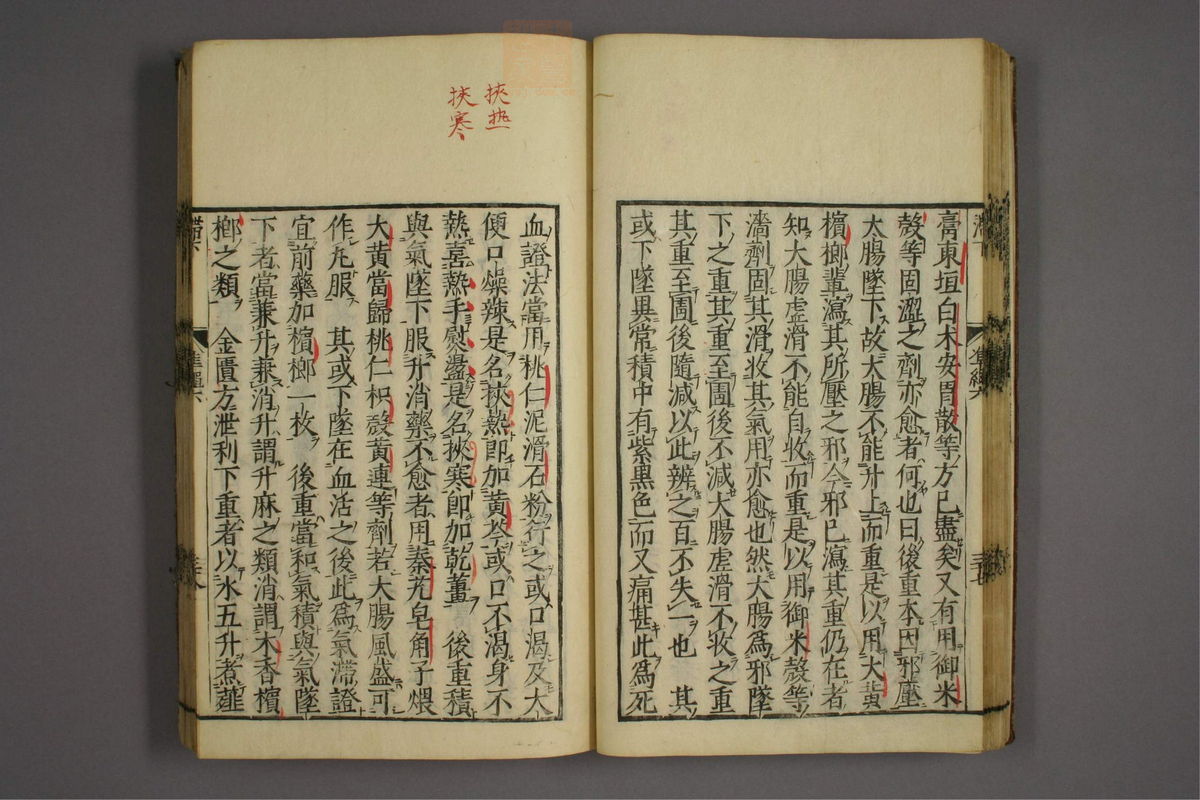 膏東垣白朮安胃散等方已盡矣又有用御米
殼等固澀之劑亦愈者何也曰後重本因邪壓
大腸墜下故大腸不能升上而重是以用大黃
檳榔輩瀉其所壓之邪今邪已瀉其重仍在者
知大腸虛滑不能自收而重是以用御米殼等
濇劑固其滑收其氣用亦愈也然大腸爲邪墜
下之重其重至圊後不減大腸虛滑不收之重
其重至圊後隨減以此辨之百不失一也　其
或下墜異常積中有紫黒色而又痛甚此爲死
挾热
挾寒
血證法當用桃仁泥滑石粉行之或口渴及大
便口燥辣是名挾熱即加黃芩或口不渴身不
熱喜熱手熨盪是名挾寒即加乾薑　後重積
與氣墜下服升消藥不愈者用秦艽皂角子煨
大黃當歸桃仁枳殼黃連等劑若大腸風盛可
作丸服　其或下墜在血活之後此爲氣滯證
宜前藥加檳榔一枚　後重當和氣積與氣墜
下者當兼升兼消升謂升麻之類消謂木香檳
榔之類　金匱方泄利下重者以水五升煮薤